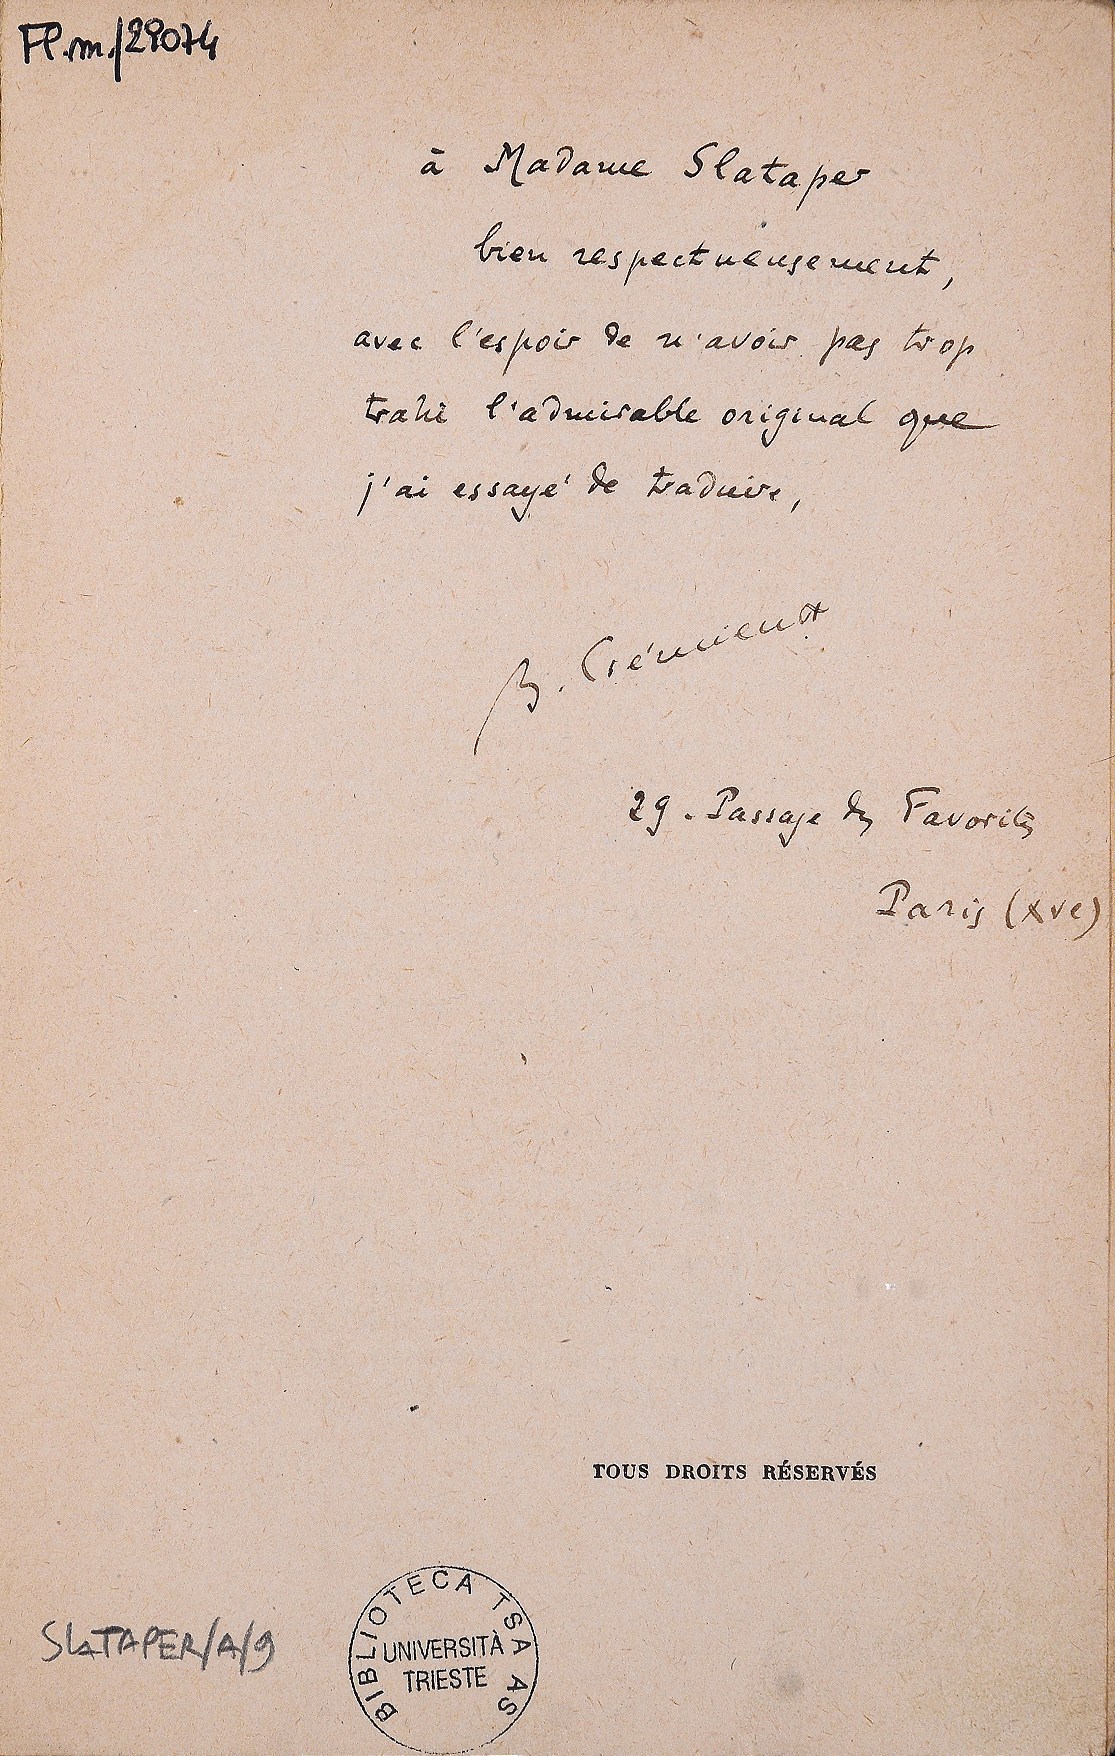 Fl.m./29074
à Madame Slataper
bien respectueusement,
avec l'espoir de n'avoir pas trop
trahi l'admirable original que
j'ai essayé de traduire,
B. Crémieux
29. Passage des Favorites
Paris (XVe)
TOUS DROITS RÉSERVÉS
SLATAPER/A/9
BIBLIOTECA TSA AS
UNIVERSITÀ
TRIESTE